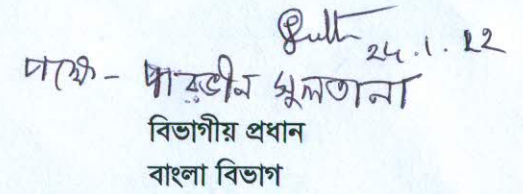 24.1.22
পক্ষে- পারভীন সুলতানা
বিভাগীয় প্রধান
বাংলা বিভাগ